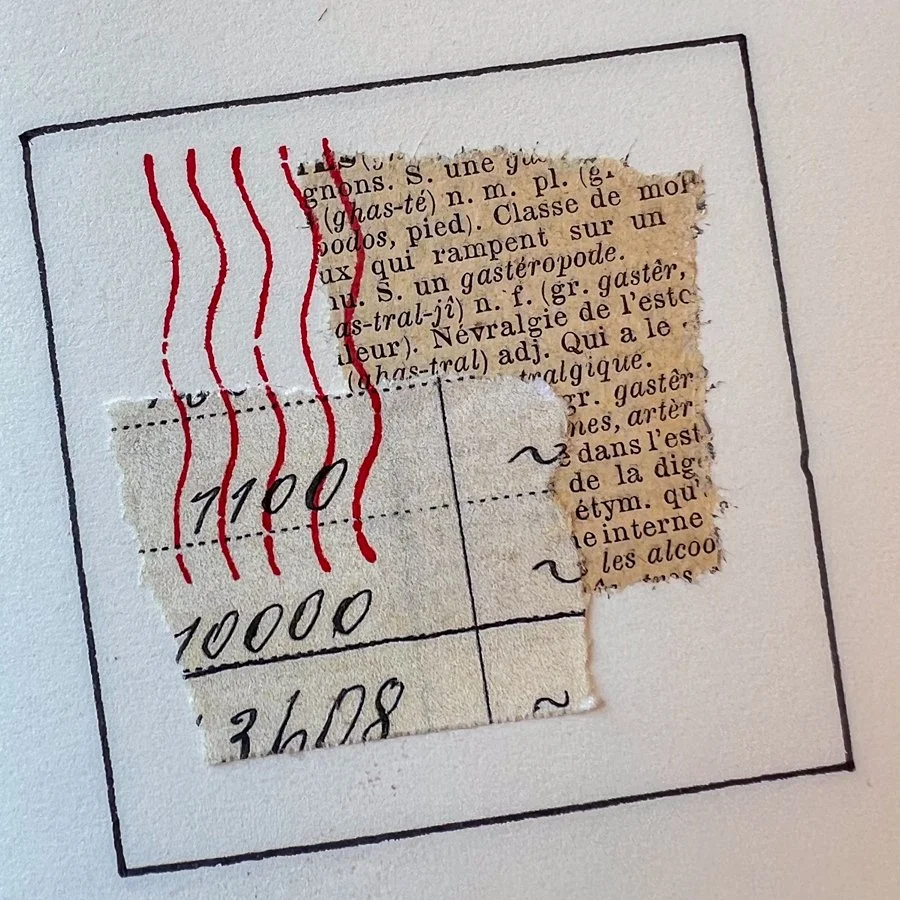 gnons. S. une
(ghas-té) n. m. pl. (gr
podos, pied). Classe de mol
ux qui rampent sur un
nu. S. un gastéropode.
as-tral-jî) n. f. (gr. gastêr,
leur). Névralgie de l'esto
(ghas-tral) adj. Qui a le
tralgique.
gr. gastêr
nes, artèr
dans l'est
de la dig
étym. qu'
ne interne
les alcoo
1100 ~
10000 ~
3608 ~